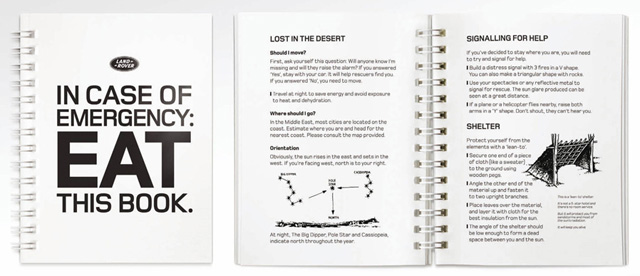 LAND-
ROVER
IN CASE OF
EMERGENCY:
EAT
THIS BOOK.
LOST IN THE DESERT
Should I move?
First, ask yourself this question: Will anyone know I'm
missing and will they raise the alarm? If you answered
'Yes', stay with your car. It will help rescuers find you
if you answered 'No', you need to move.
Travel at night to save energy and avoid exposure
to heat and dehydration.
Where should I go?
In the Middle East, most cities are located on the
coast. Estimate where you are and head for the
nearest coast. Please consult the map provided.
Orientation
Obviously, the sun rises in the east and sets in the
west. If you're facing west, north is to your right.
BIG DIPPER
POLE
STAR
CASSIOPEIA
NORTH
At night, The Big Dipper, Pole Star and Cassiopeia,
indicate north throughout the year.
SIGNALLING FOR HELP
If you've decided to stay where you are, you will need
to try and signal for help.
Build a distress signal with 3 fires in a V shape.
You can also make a triangular shape with rocks.
Use your spectacles or any reflective metal to
signal for rescue. The sun glare produced can be
seen at a great distance.
If a plane or a helicopter flies nearby, raise both
arms in a 'Y' shape. Don't shout, they can't hear you.
SHELTER
Protect yourself from the
elements with a 'lean-to'.
Secure one end of a piece
of cloth (like a sweater)
to the ground using
wooden pegs.
Angle the other end of the
material up and fasten it
to two upright branches.
Place leaves over the material,
and layer it with cloth for the
best insulation from the sun.
The angle of the shelter should
be low enough to form a dead
space between you and the sun.